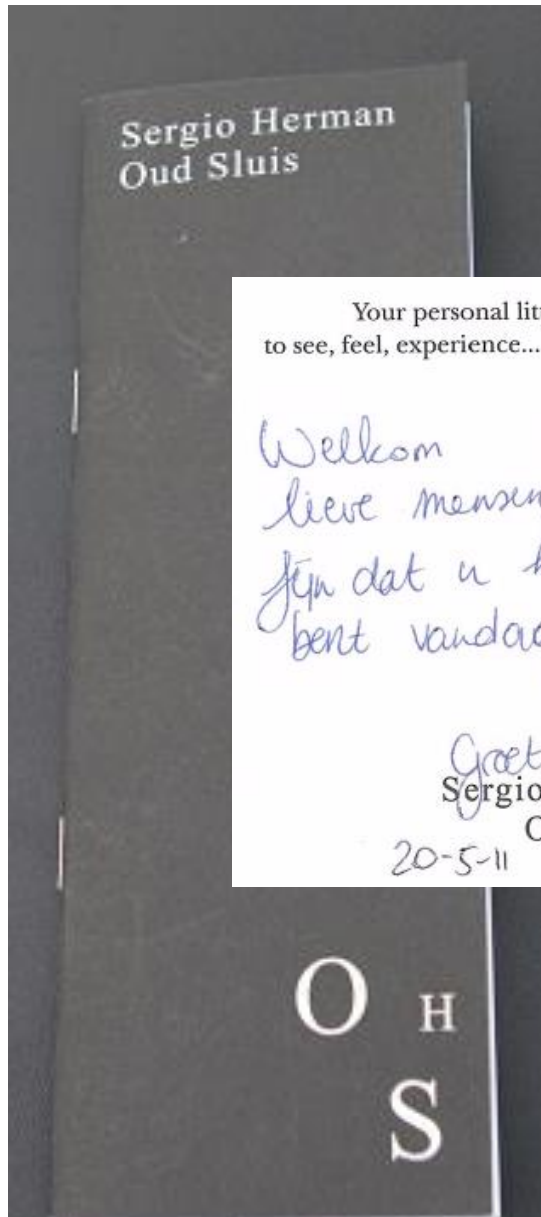 Sergio Herman
Oud Sluis
Your personal
to see, feel, experience...
Welkom
lieve
fijn dat u
bent
Sergio
20-5-11
O H
S